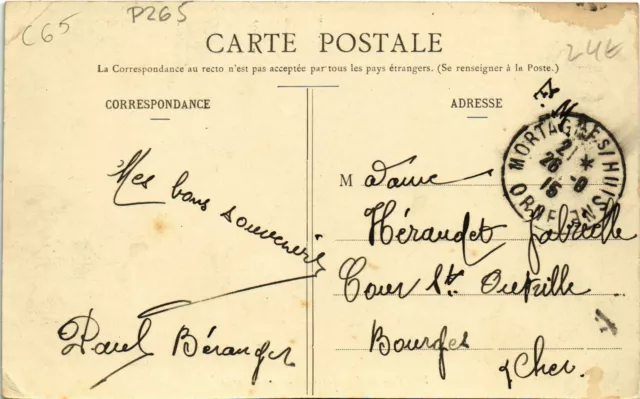 C65
P265
24t
CARTE POSTALE
La Correspondance au recto n'est pas acceptée par tous les pays étrangers. (Se renseigner à la Poste.)
CORRESPONDANCE
ADRESSE
Mes bons souvenirs
Paul Béranger
MORTAGNE
21 *
26 - 8
15
ORNE
Madame
Héraudet Gabrielle
Cour St. Outrille
Bourges
Cher